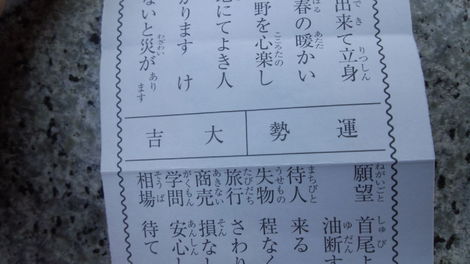 出来て立身
春の暖かい
野を心楽し
にてよき人
ります　け
ないと災が
運勢
大吉
願望　首尾よ
油断す
待人　来る
失物　程なく
旅行　さわり
商売　損な
学問　安心し
相場　待て